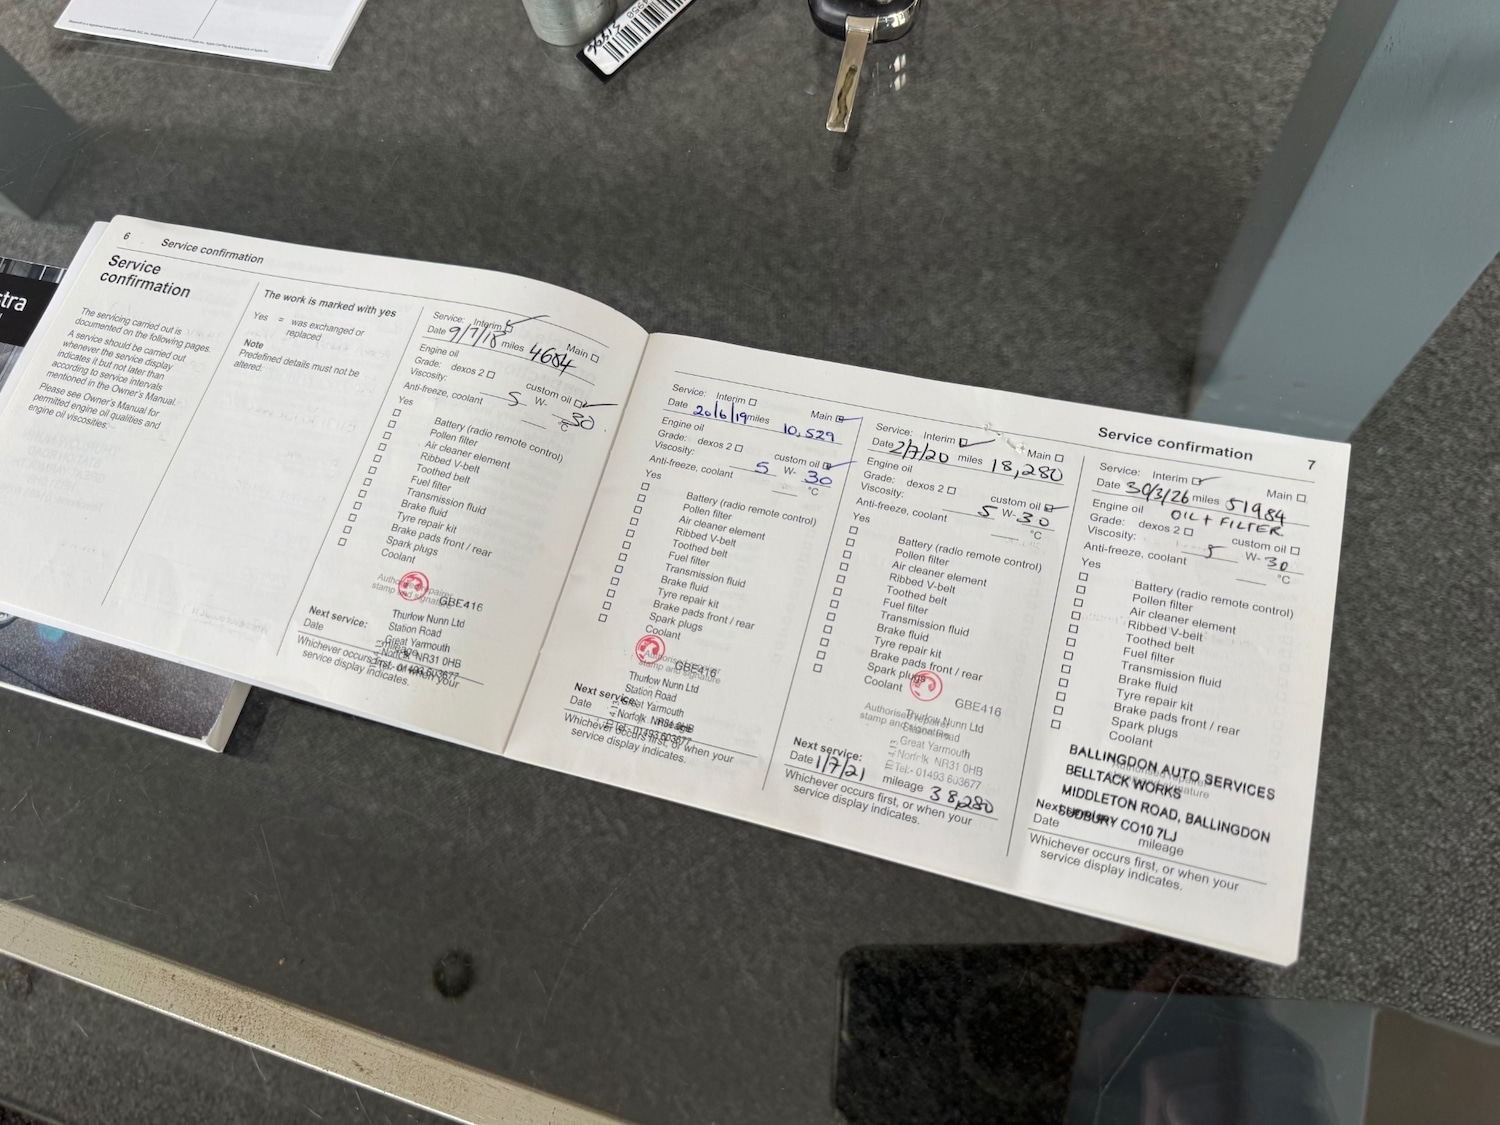 stra
6 Service confirmation
Service
confirmation
The servicing carried out is
documented on the following pages.
A service should be carried out
whenever the service display
indicates it but not later than
according to service intervals
mentioned in the Owner's Manual.
Please see Owner's Manual for
permitted engine oil qualities and
engine oil viscosities.
The work is marked with yes
Yes = was exchanged or
replaced
Note
Predefined details must not be
altered:
Service: Interim Main
Date 9/7/18 miles 4604
Engine oil
Grade: dexos 2 custom oil
Viscosity: 5 W- 30
Anti-freeze, coolant °C
Yes
Battery (radio remote control)
Pollen filter
Air cleaner element
Ribbed V-belt
Toothed belt
Fuel filter
Transmission fluid
Brake fluid
Tyre repair kit
Brake pads front / rear
Spark plugs
Coolant
Authorised repairer
stamp and signature
GBE416
Thurlow Nunn Ltd
Station Road
Great Yarmouth
Norfolk NR31 0HB
01493 603677
Next service:
Date
Whichever occurs first, or when your
service display indicates.
Service: Interim Main
Date 20/6/19 miles 10,529
Engine oil
Grade: dexos 2 custom oil
Viscosity: 5 W- 30
Anti-freeze, coolant °C
Yes
Battery (radio remote control)
Pollen filter
Air cleaner element
Ribbed V-belt
Toothed belt
Fuel filter
Transmission fluid
Brake fluid
Tyre repair kit
Brake pads front / rear
Spark plugs
Coolant
Authorised repairer
stamp and signature
GBE416
Thurlow Nunn Ltd
Station Road
Great Yarmouth
Norfolk NR31 0HB
Tel:- 01493 603677
Next service:
Date mileage
Whichever occurs first, or when your
service display indicates.
Service: Interim Main
Date 2/7/20 miles 18,280
Engine oil
Grade: dexos 2 custom oil
Viscosity: 5 W- 30
Anti-freeze, coolant °C
Yes
Battery (radio remote control)
Pollen filter
Air cleaner element
Ribbed V-belt
Toothed belt
Fuel filter
Transmission fluid
Brake fluid
Tyre repair kit
Brake pads front / rear
Spark plugs
Coolant
Authorised repairer
stamp and signature
GBE416
Thurlow Nunn Ltd
Station Road
Great Yarmouth
Norfolk NR31 0HB
Tel:- 01493 603677
Next service:
Date 1/7/21 mileage 38,280
Whichever occurs first, or when your
service display indicates.
Service confirmation 7
Service: Interim Main
Date 30/3/26 miles 51984
Engine oil OIL + FILTER
Grade: dexos 2 custom oil
Viscosity: 5 W- 30
Anti-freeze, coolant °C
Yes
Battery (radio remote control)
Pollen filter
Air cleaner element
Ribbed V-belt
Toothed belt
Fuel filter
Transmission fluid
Brake fluid
Tyre repair kit
Brake pads front / rear
Spark plugs
Coolant
Authorised repairer
stamp and signature
BALLINGDON AUTO SERVICES
BELLTACK WORKS
MIDDLETON ROAD, BALLINGDON
SUDBURY CO10 7LJ
Next service:
Date mileage
Whichever occurs first, or when your
service display indicates.